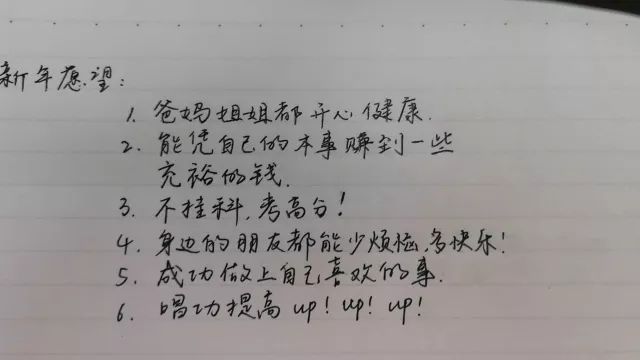 新年愿望:
1. 爸妈姐姐都开心健康.
2. 能凭自己的本事赚到一些
充裕的钱.
3. 不挂科,考高分!
4. 身边的朋友都能少烦恼,多快乐!
5. 成功做上自己喜欢的事.
6. 唱功提高 up! up! up!